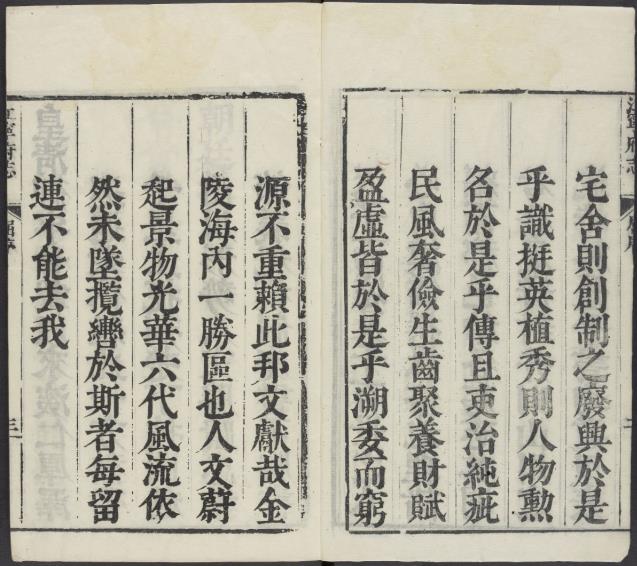 宅舍則創制之廢興於是
乎識挺英植秀則人物勲
名於是乎傳且吏治純疵
民風奢儉生齒聚養財賦
盈虛皆於是乎溯委而窮
源不重賴此邦文獻哉金
陵海內一勝區也人文蔚
起景物光華六代風流依
然未墜攬轡於斯者每留
連不能去我
江寧府志
三